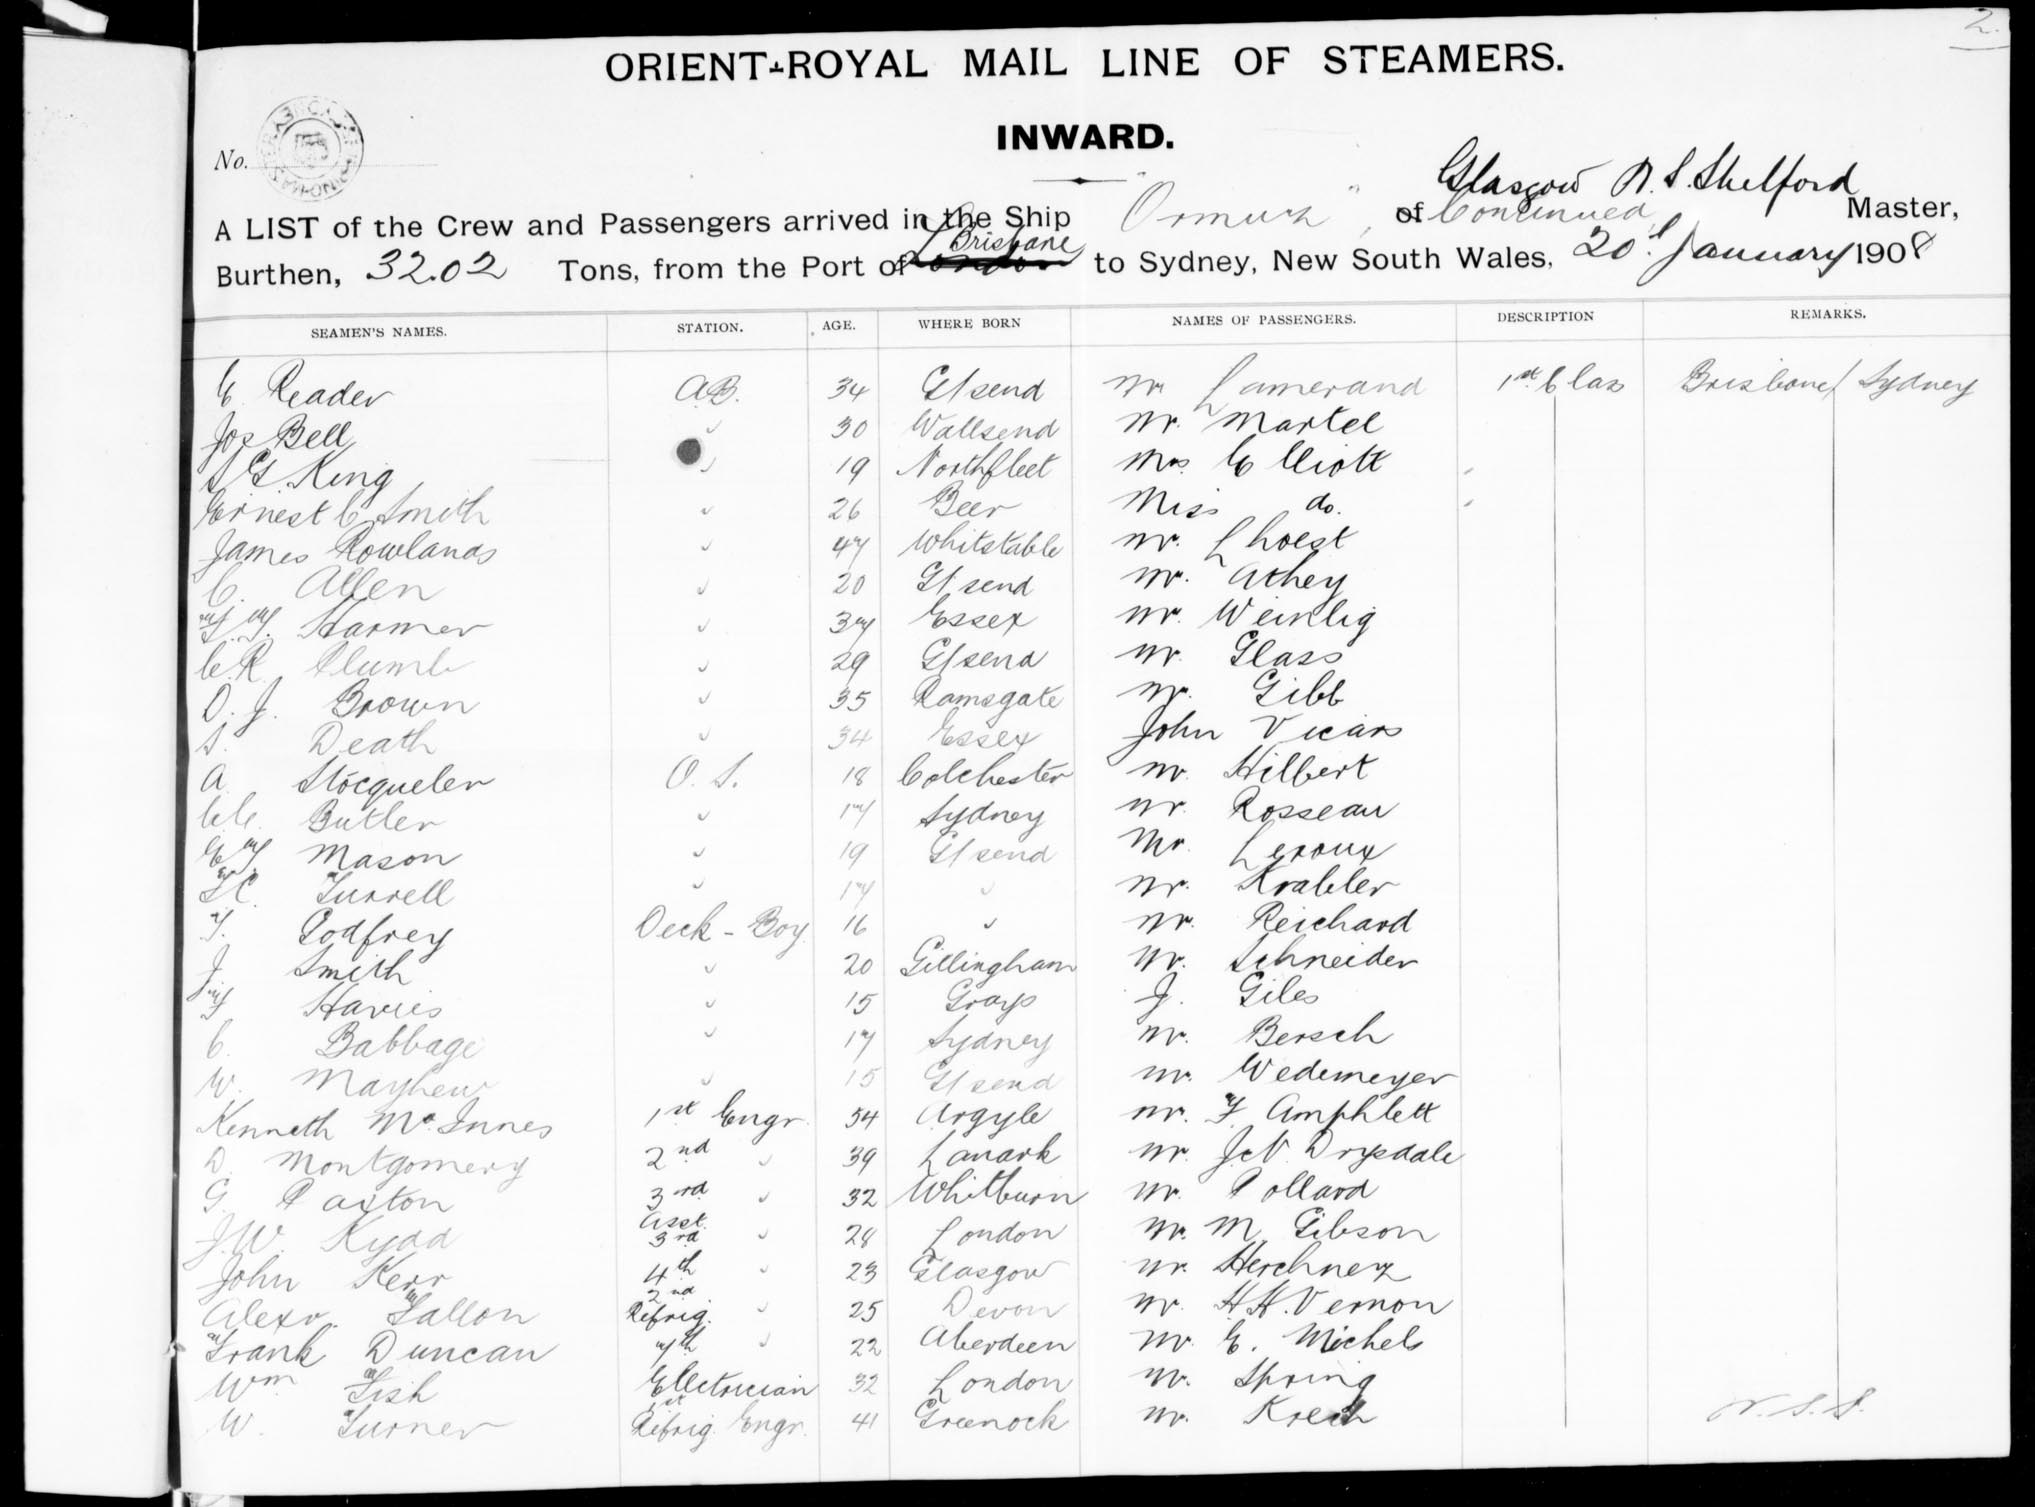 2.
ORIENT-ROYAL MAIL LINE OF STEAMERS.
INWARD.
No.
Glasgow N. S. Shelford
A LIST of the Crew and Passengers arrived in the Ship "Ormuz", of Continued Master,
Brisbane
Burthen, 32.02 Tons, from the Port of London to Sydney, New South Wales, 20th January 1908
SEAMEN'S NAMES. STATION. AGE. WHERE BORN NAMES OF PASSENGERS. DESCRIPTION REMARKS.
E Reader A.B. 34 G/send Mr Lamerand 1st Class Brisbane / Sydney
Jos Bell " 30 Wallsend Mr. Martel
S G King " 19 Northfleet Mrs. Elliott
Ernest C Smith " 26 Beer Miss do.
James Rowlands " 47 Whitstable Mr. Lhoest
C. Allen " 20 G/send Mr. Athey
F. T. Harmer " 37 Essex Mr. Weinlig
C. R. Plumb " 29 G/send Mr. Glass
D. J. Brown " 35 Ramsgate Mr. Gibb
S. Death " 34 Essex John Vicars
A. Stocqueler O. S. 18 Colchester Mr. Hilbert
C. C. Butler " 17 Sydney Mr. Rosseau
E T Mason " 19 G/send Mr. Leroux
Turrell " 17 " Mr. Krabler
T. Godfrey Deck-Boy 16 " Mr. Reichard
J. Smith " 20 Gillingham Mr. Schneider
Harris " 15 Grays J. Giles
C. Babbage " 17 Sydney Mr. Bersch
W. Mayhew " 15 G/send Mr. Wedemeyer
Kenneth McInnes 1st Engr. 54 Argyle Mr. F Amphlett
D. Montgomery 2nd " 39 Lanark Mr. J. N. Drysdale
G. Paxton 3rd " 32 Whitburn Mr. Pollard
J. W. Kydd Asst. 3rd " 28 London Mr. M. Gibson
John Kerr 4th " 23 Glasgow Mr. Herchnez
Alexr. Fallon 2nd Refrig. " 25 Devon Mr. H. H. Vernon
Frank Duncan 7th " 22 Aberdeen Mr. E. Michels
Wm Fish Electrician 32 London Mr. Spring
W. Turner 1st Refrig. Engr. 41 Greenock Mr.
N. S. S.